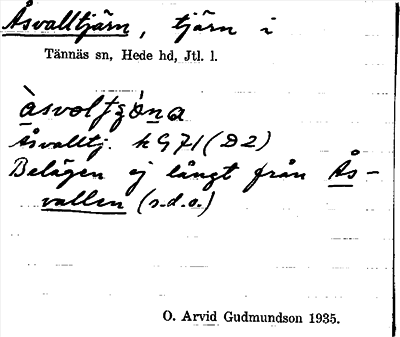 Åsvalltjärn, tjärn i
Tännäs sn, Hede hd, Jtl. l.
Åsvalltj. k G 71 (D2)
Belägen ej långt från Ås-
vallen (s.d.o.)
O. Arvid Gudmundson 1935.